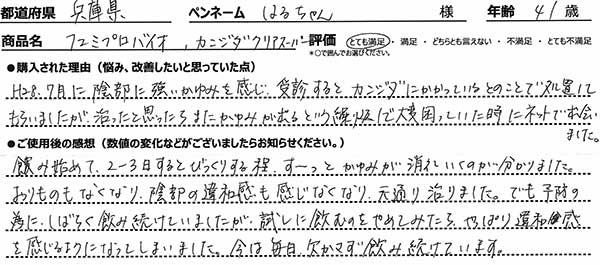 都道府県 兵庫県 ペンネーム はるちゃん 様 年齢 41 歳
商品名 フェミプロバイオ、カンジダクリアスーパー 評価 とても満足 ・ 満足 ・ どちらとも言えない ・ 不満足 ・ とても不満足
*○で囲んでお選びください。
●購入された理由（悩み、改善したいと思っていた点）
H28.7月に陰部に強いかゆみを感じ、受診するとカンジダにかかっているとのことで処置して
もらいましたが、治ったと思ったらまたかゆみが出るという繰り返しで大変困っていた時にネットで出会い
ました。
●ご使用後の感想（数値の変化などがございましたらお知らせください。）
飲み始めて、2～3日するとびっくりする程、すーっとかゆみが消えていくのが分かりました。
おりものもなくなり、陰部の違和感も感じなくなり、元通り治りました。でも予防の
為に、しばらく飲み続けていましたが、試しに飲むのをやめてみたら、やっぱり違和感
を感じるようになってしまいました。今は毎日、欠かさず飲み続けています。